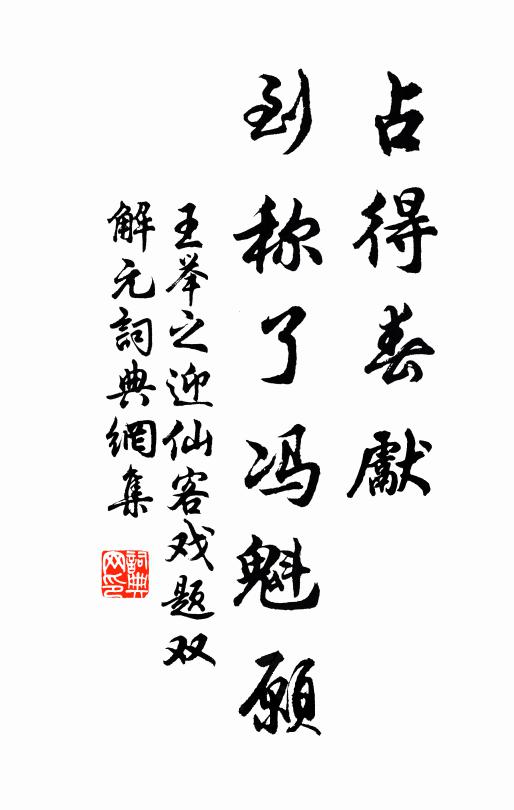 占得春獻
到称了冯魁愿
王举之迎仙客戏题双
解元詞典網集
詞典网印